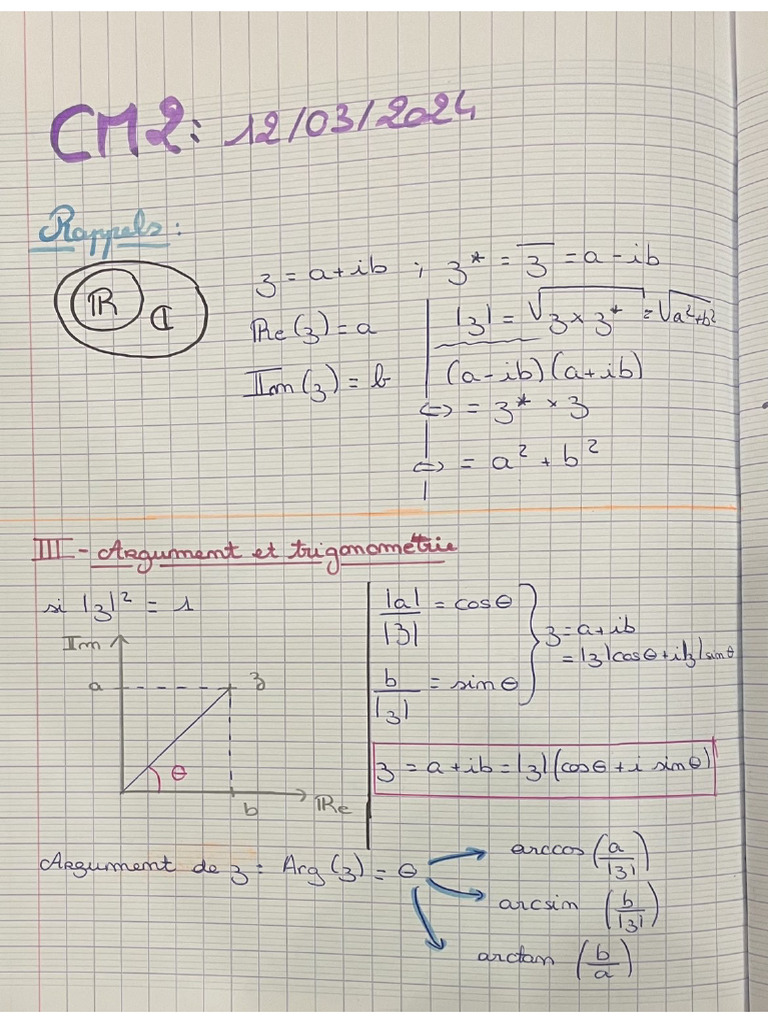 CM2: 12/03/2024
Rappels:
ℝ ℂ
z = a+ib ; z* = z̅ = a-ib
Re(z) = a
Im(z) = b
|z| = √(z × z*) = √(a²+b²)
(a-ib)(a+ib)
<=> = z* × z
<=> = a² + b²
III - Argument et trigonométrie
si |z|² = 1
Im
a
z
θ
b
Re
|a|/|z| = cosθ
b/|z| = sinθ
z = a+ib
= |z|cosθ+i|z|sinθ
z = a+ib = |z|(cosθ + i sinθ)
Argument de z : Arg(z) = θ
arccos (a/|z|)
arcsin (b/|z|)
arctan (b/a)